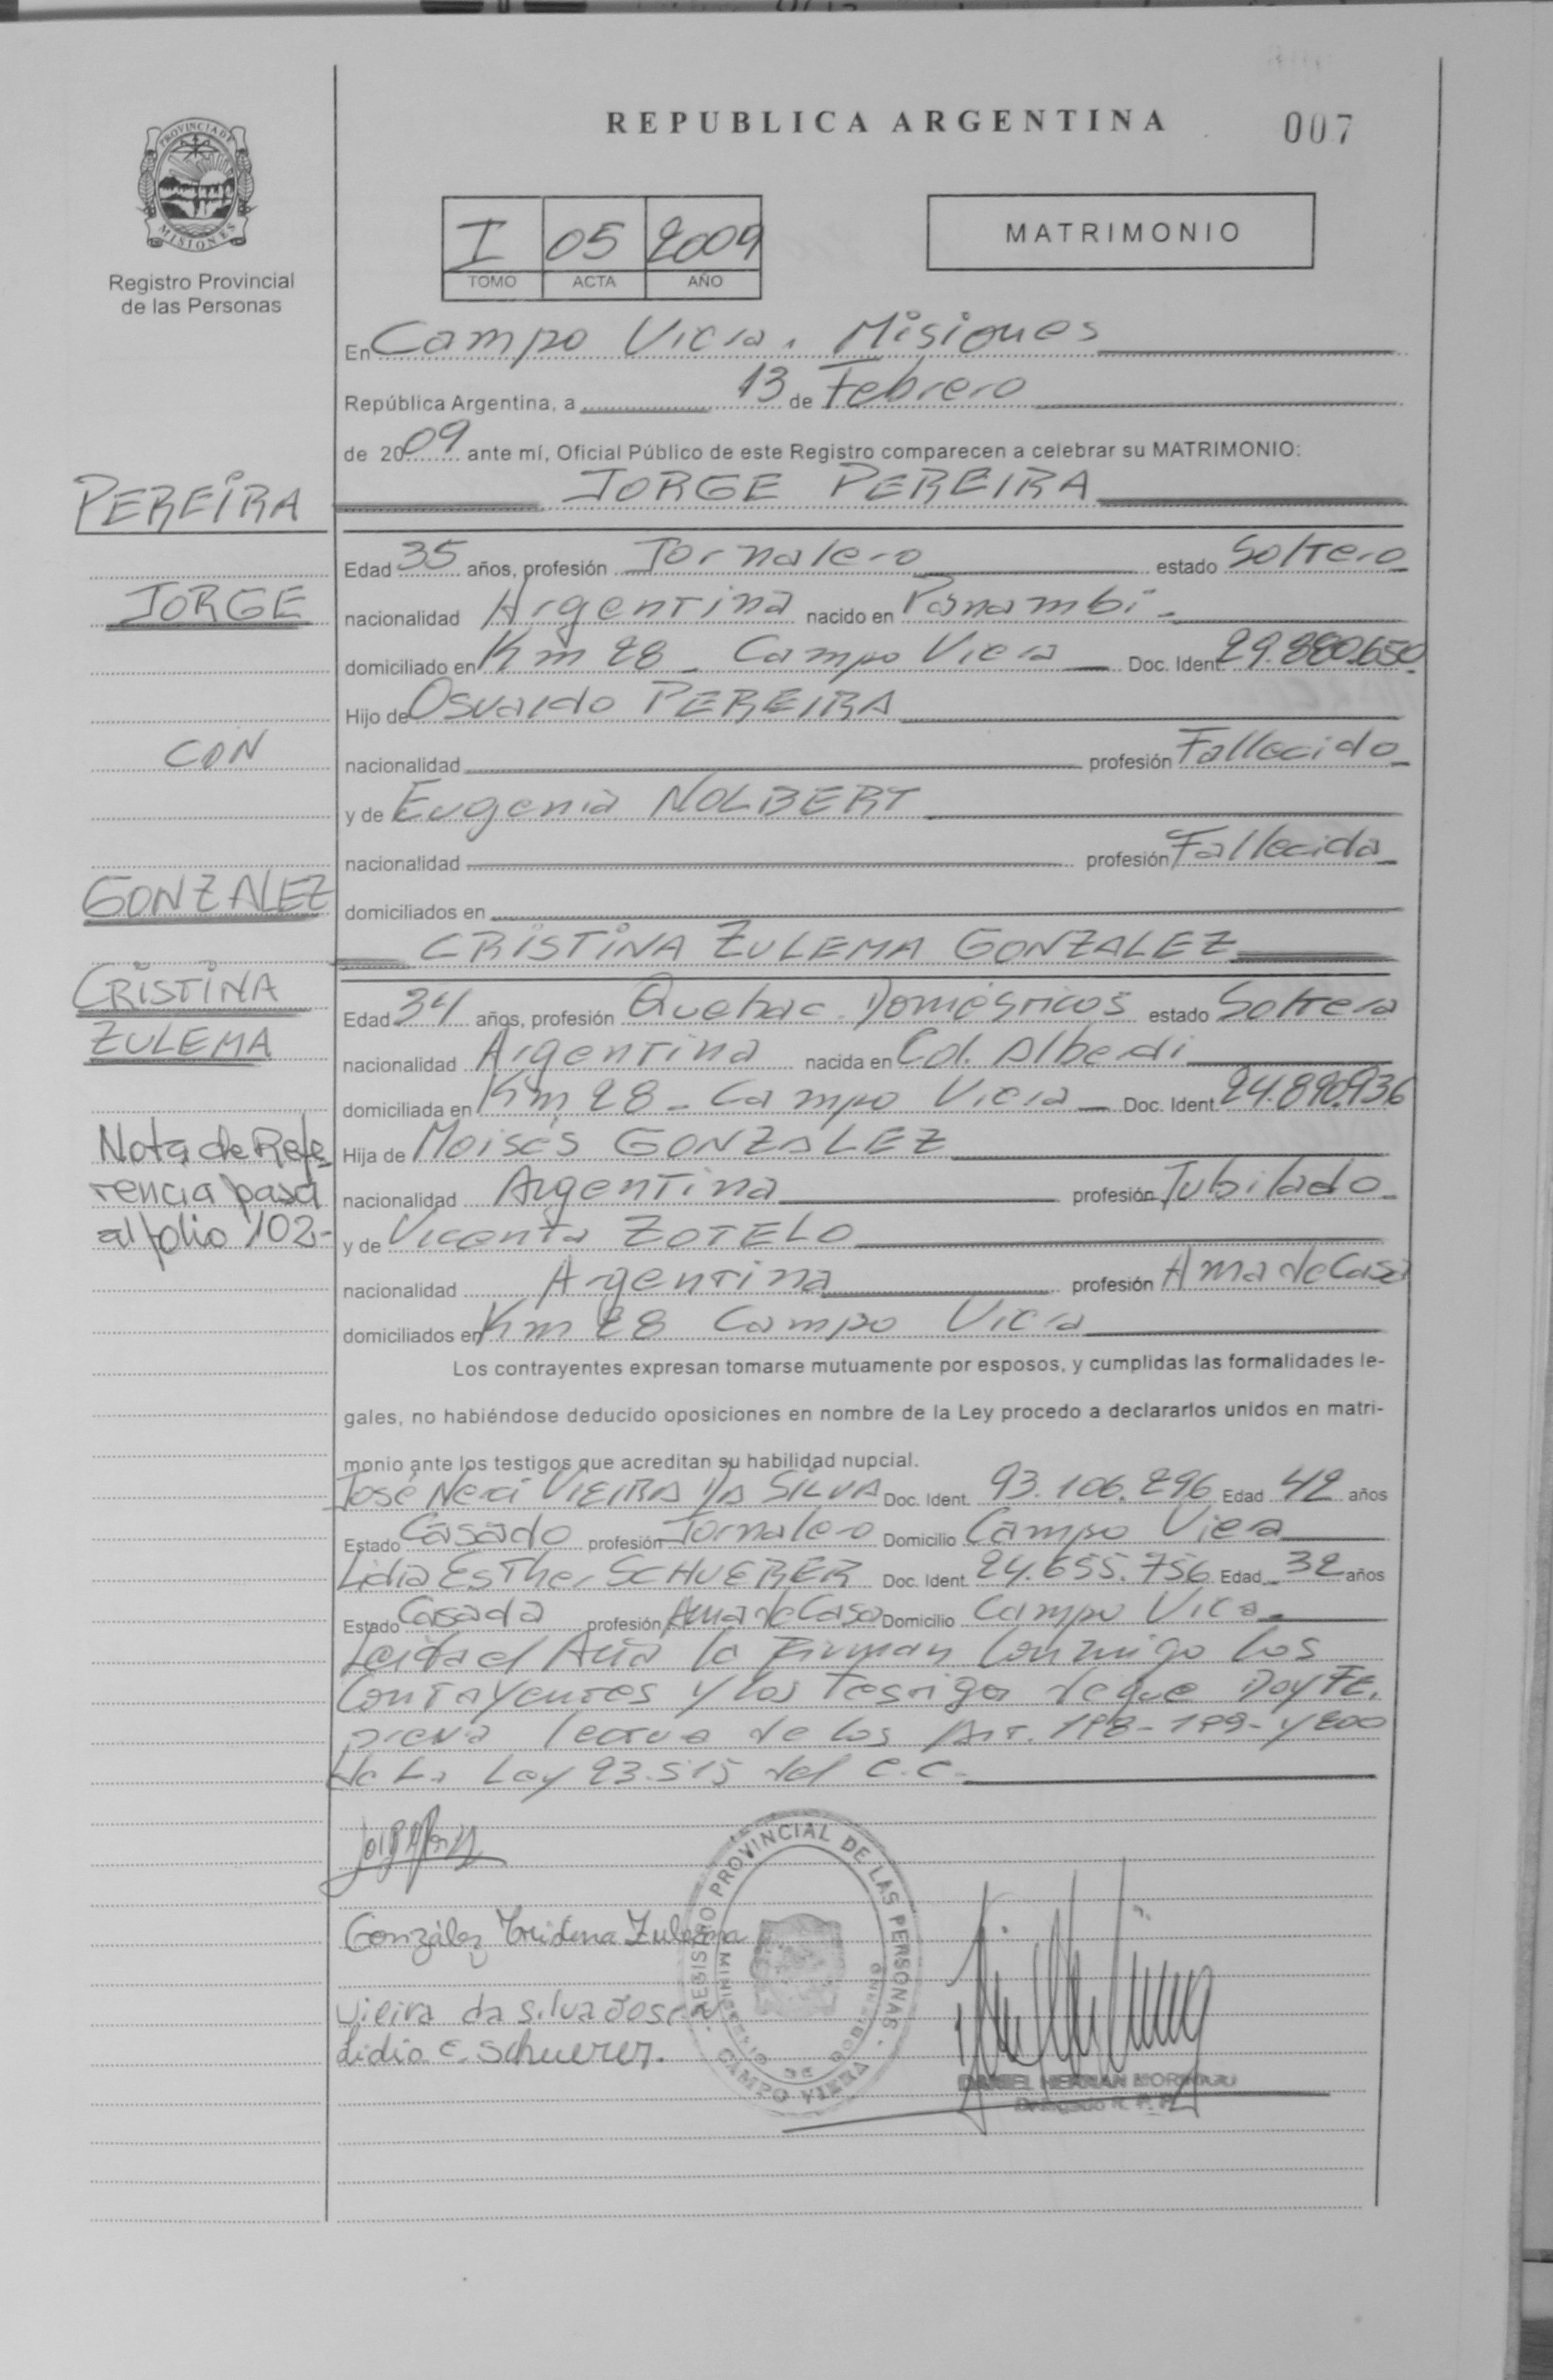 REPUBLICA ARGENTINA
007
PROVINCIA DE
MISIONES
Registro Provincial
de las Personas
I 05 2009
TOMO ACTA AÑO
MATRIMONIO
En Campo Viera, Misiones
República Argentina, a 13 de Febrero
de 2009 ante mí, Oficial Público de este Registro comparecen a celebrar su MATRIMONIO:
PEREIRA
JORGE PEREIRA
Edad 35 años, profesión Jornalero estado Soltero
JORGE
nacionalidad Argentina nacido en Panambi-
domiciliado en Km 28 - Campo Viera Doc. Ident. 29.880.650
Hijo de Osvaldo PEREIRA
CON
nacionalidad profesión Fallecido
y de Eugenia NOLBERT
nacionalidad profesión Fallecida
GONZALEZ
domiciliados en
CRISTINA ZULEMA GONZALEZ
CRISTINA
Edad 34 años, profesión Quehac. Domésticos estado Soltera
ZULEMA
nacionalidad Argentina nacida en Col. Alberdi
domiciliada en Km 28 - Campo Viera Doc. Ident. 24.890.936
Nota de Refe
Hija de Moisés GONZALEZ
rencia pasa
nacionalidad Argentina profesión Jubilado
al folio 102.-
y de Vicenta ZOTELO
nacionalidad Argentina profesión Ama de Casa
domiciliados en Km 28 Campo Viera
Los contrayentes expresan tomarse mutuamente por esposos, y cumplidas las formalidades le-
gales, no habiéndose deducido oposiciones en nombre de la Ley procedo a declararlos unidos en matri-
monio ante los testigos que acreditan su habilidad nupcial.
José Neri VIEIRA DA SILVA Doc. Ident. 93.106.296 Edad 42 años
Estado Casado profesión Jornalero Domicilio Campo Viera
Lidia Esther SCHUERER Doc. Ident. 24.655.756 Edad 32 años
Estado Casada profesión Ama de Casa Domicilio Campo Viera
Leida el Acta la Firman Conmigo los
Contrayentes y los Testigos de que Doy FE.
previa lectura de los Art. 198-199-y 200
de La Ley 23.515 del C.C.
González Cristina Zulema
Vieira da silva Jose N
Lidia E. Schuerer.
REGISTRO PROVINCIAL DE LAS PERSONAS
MINISTERIO DE GOBIERNO
CAMPO VIERA
DANIEL HERNAN